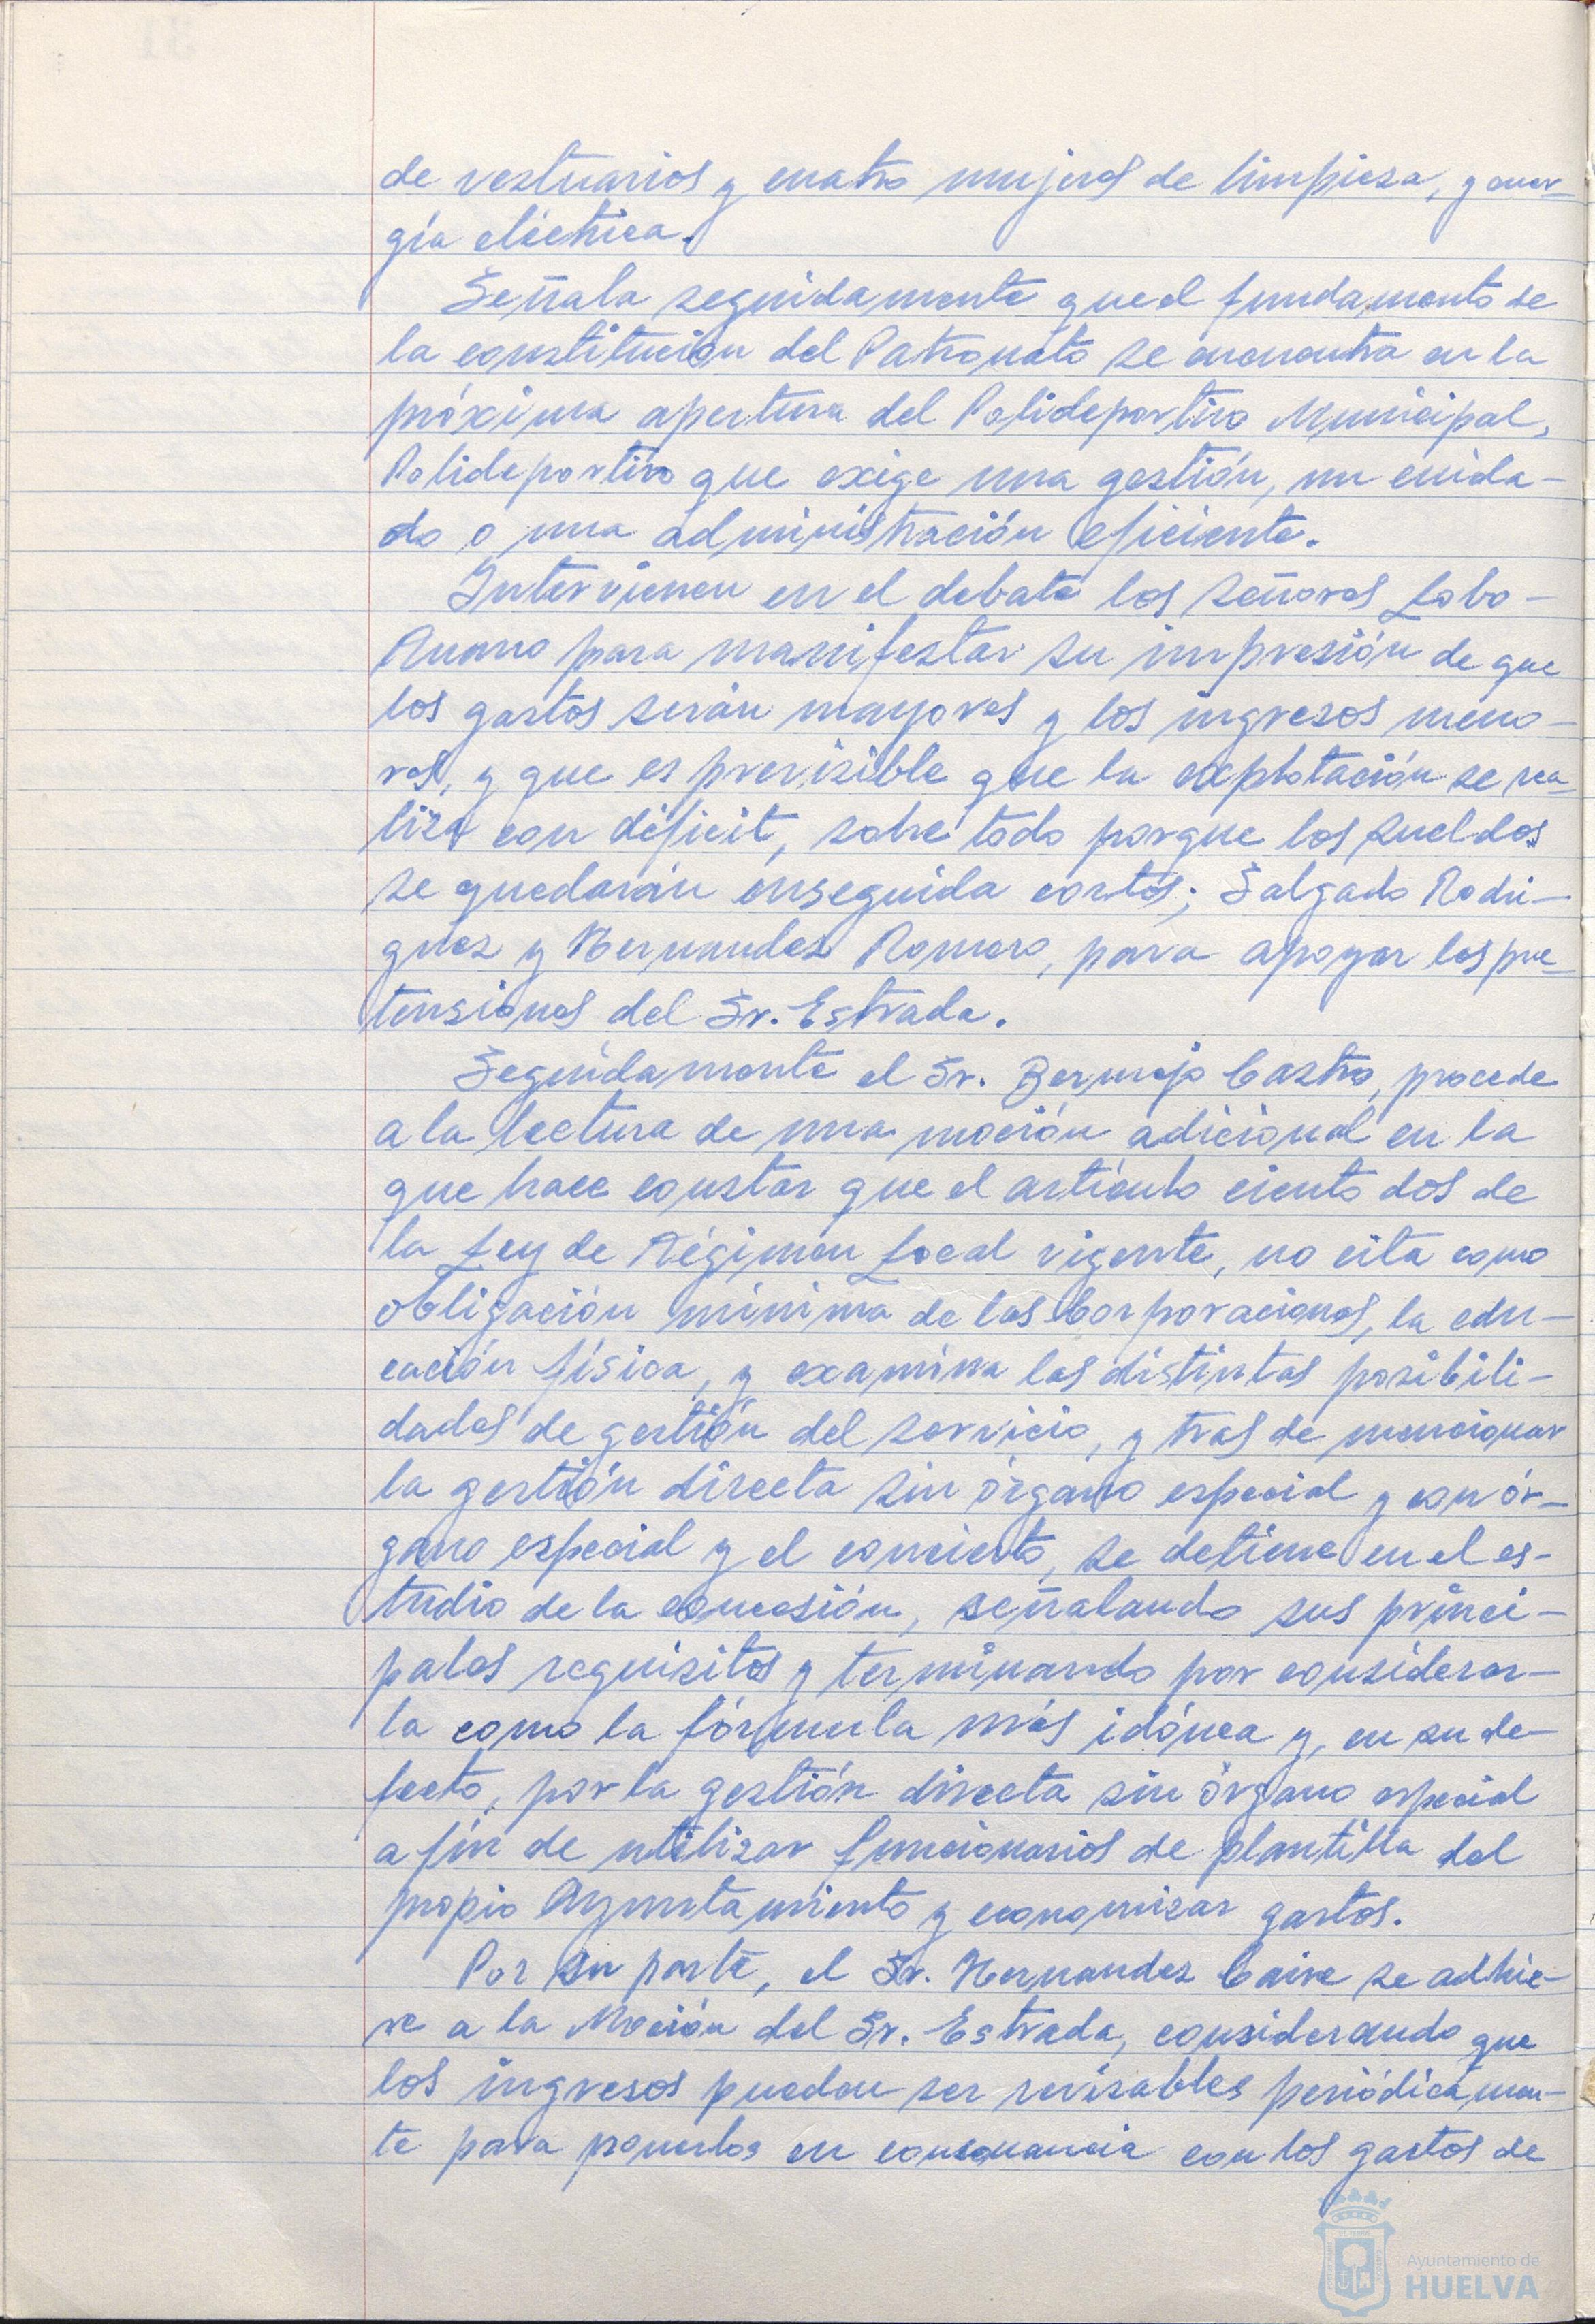 de vestuarios y cuatro mujeres de limpieza, y ener-
gía eléctrica.
Señala seguidamente que el fundamento de
la constitución del Patronato se encuentra en la
próxima apertura del Polideportivo Municipal,
Polideportivo que exige una gestión, un cuida-
do o una administración eficiente.
Intervienen en el debate los señores Lobo-
para manifestar su impresión de que
los gastos serán mayores y los ingresos meno-
res, y que es previsible que la explotación se rea-
liza con déficit, sobre todo porque los sueldos
se quedarán enseguida cortos; Salgado Rodri-
guez y Hernandez Romero, para apoyar las pre-
tensiones del Sr. Estrada.
Seguidamente el Sr. Bermejo Castro, procede
a la lectura de una moción adicional en la
que hace constar que el artículo ciento dos de
la Ley de Régimen Local vigente, no cita como
obligación mínima de las Corporaciones, la edu-
cación física, y examina las distintas posibili-
dades de gestión del servicio, y tras de mencionar
la gestión directa sin órgano especial y con ór-
gano especial y el concierto, se detiene en el es-
tudio de la concesión, señalando sus princi-
pales requisitos y terminando por considerar-
la como la fórmula más idónea y, en su de-
fecto, por la gestión directa sin órgano especial
a fin de utilizar funcionarios de plantilla del
propio Ayuntamiento y economizar gastos.
Por su parte, el Sr. Hernandez Caire se adhie-
re a la Moción del Sr. Estrada, considerando que
los ingresos pueden ser revisables periódicamen-
te para ponerlos en consonancia con los gastos de
Ayuntamiento de
HUELVA